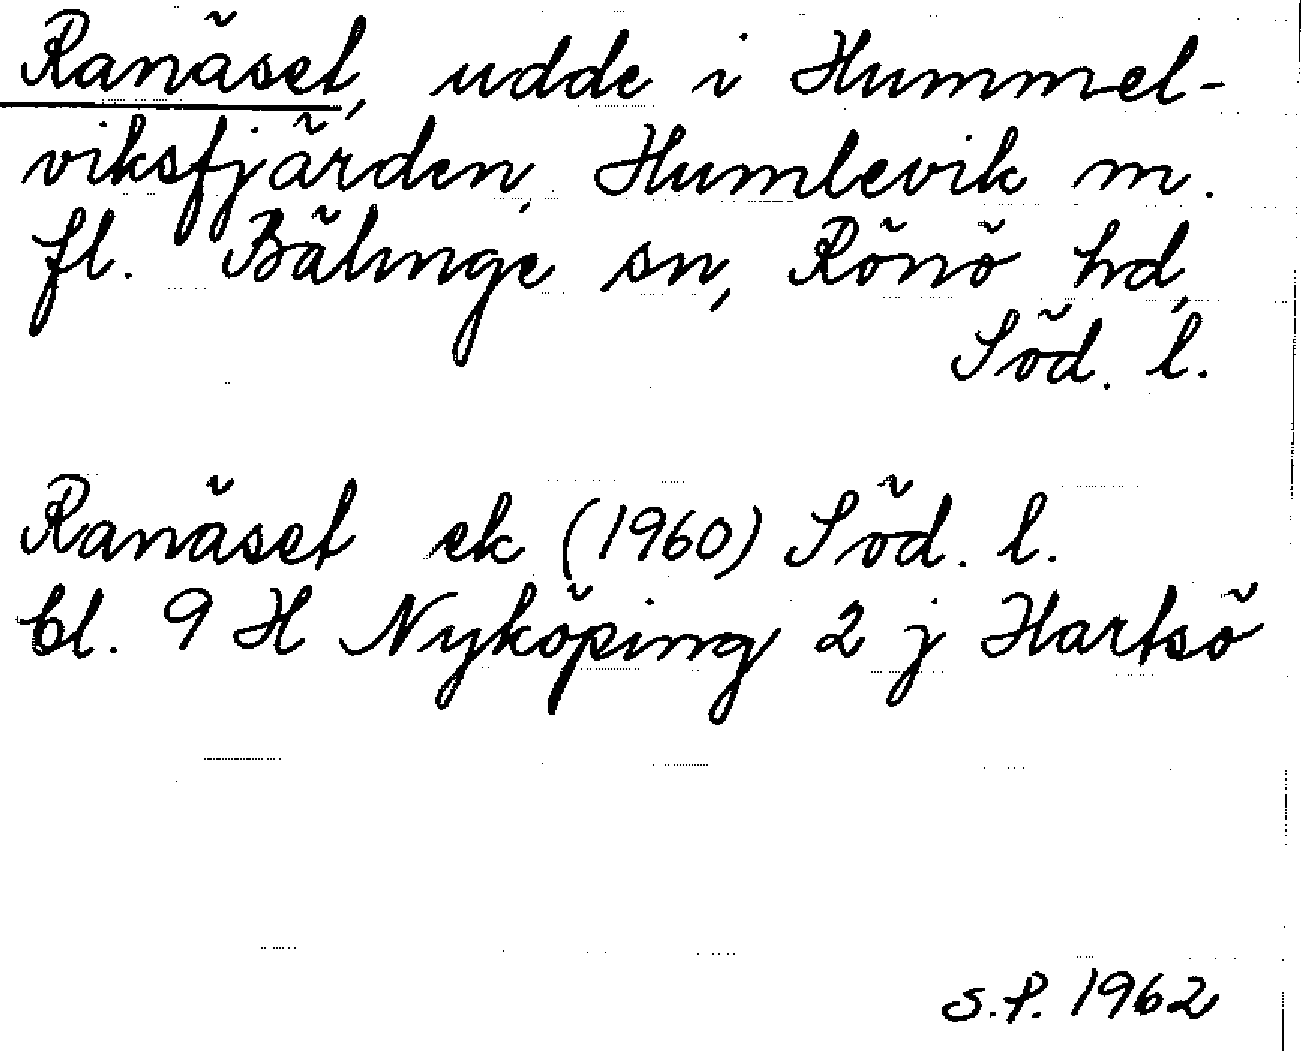 Ranäset, udde i Hummel-
viksfjärden, Humlevik m.
fl. Bälinge sn, Rönö hd,
Söd. l.
Ranäset ek (1960) Söd. l.
bl. 9 H Nyköping 2 j Hartsö
S.P. 1962